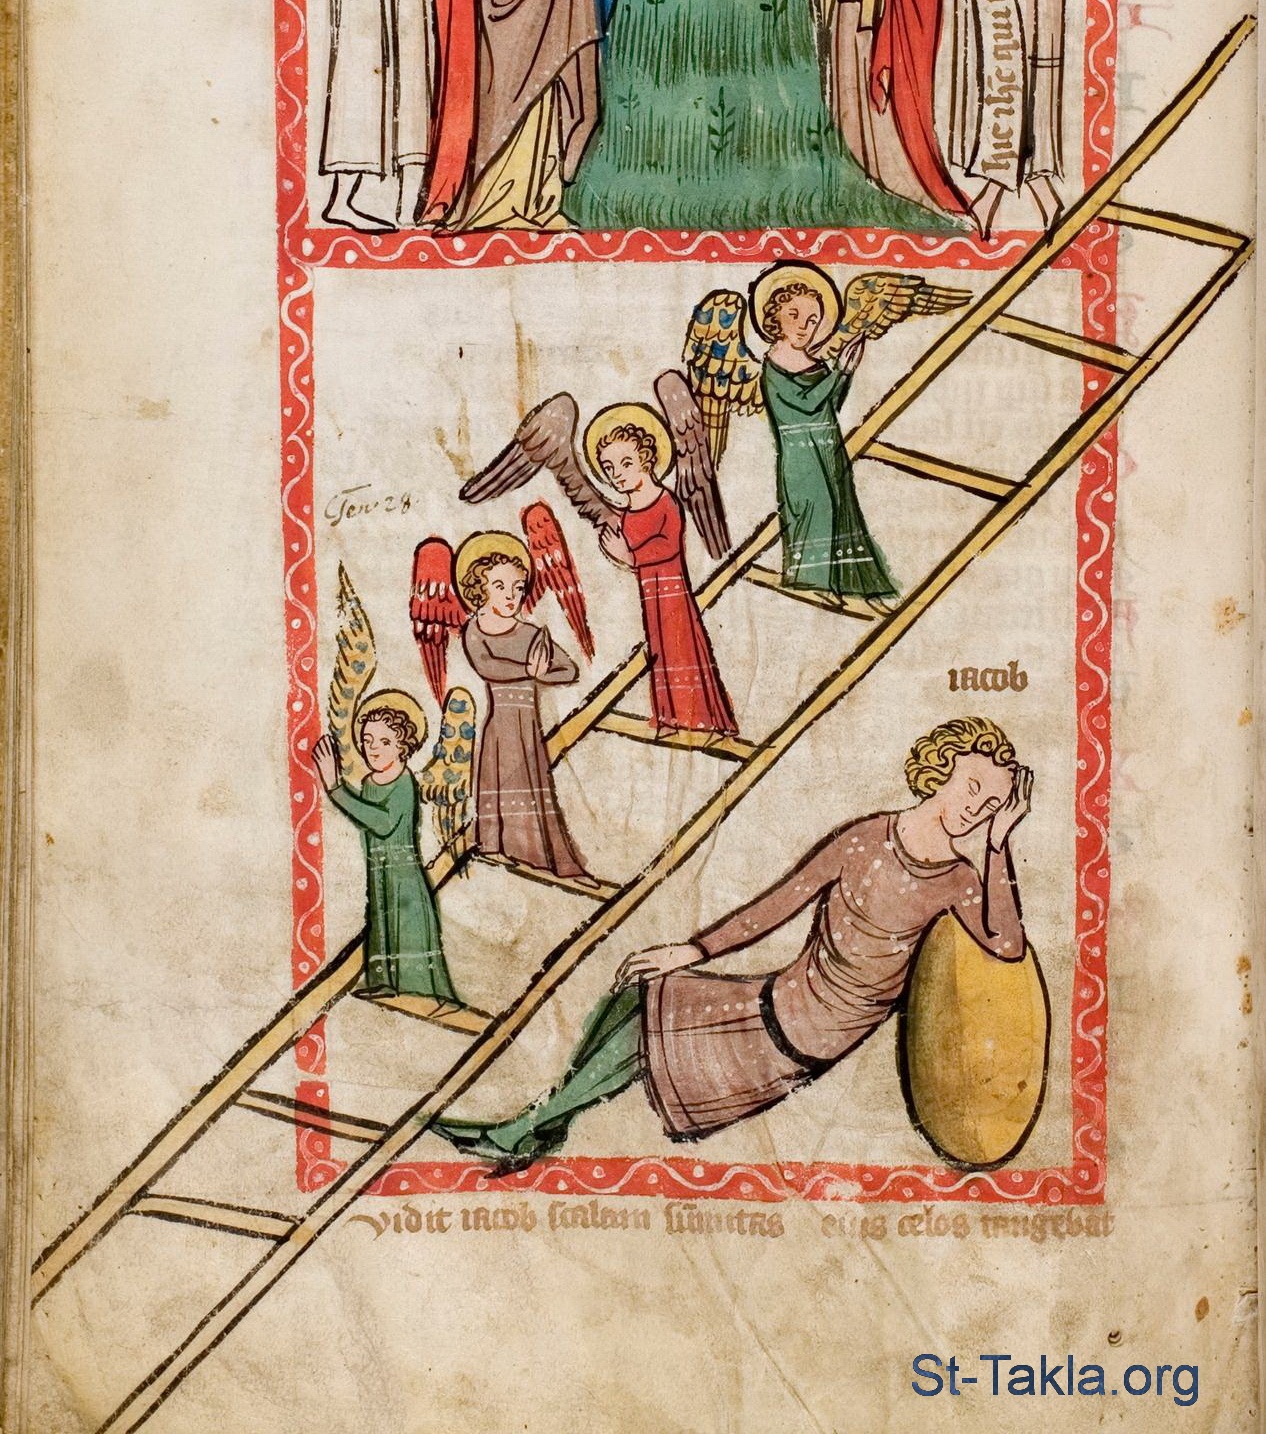 hic ihc qui
Gen. 28
iacob
vidit iacob scalam su̅mitas eius celos tangebat
St-Takla.org